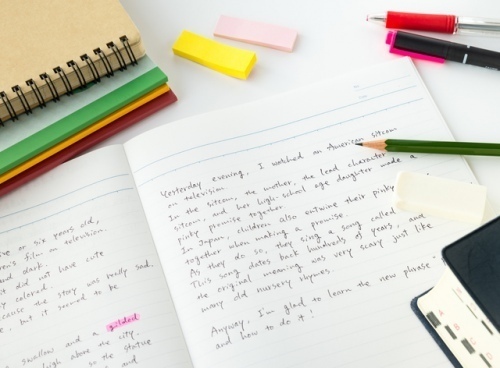 ve or six years old,
en's film on television.
and dark.
t did not have cute
y colored.
cause the story was really sad.
e, but it seemed to be
swallow and a gilded
high above the city.
so the statue
and
Yesterday evening, I watched an American sitcom
on television.
In the sitcom, the mother, the lead character
sitcom, and her high-school age daughter made a
pinky promise together.
In Japan, children also entwine their pinky
together when making a promise.
As they do so, they sing a song called
This song dates back hundreds of years, and
the original meaning was very scary just like
many old nursery rhymes.
Anyway, I'm glad to learn the new phrase -
and how to do it!